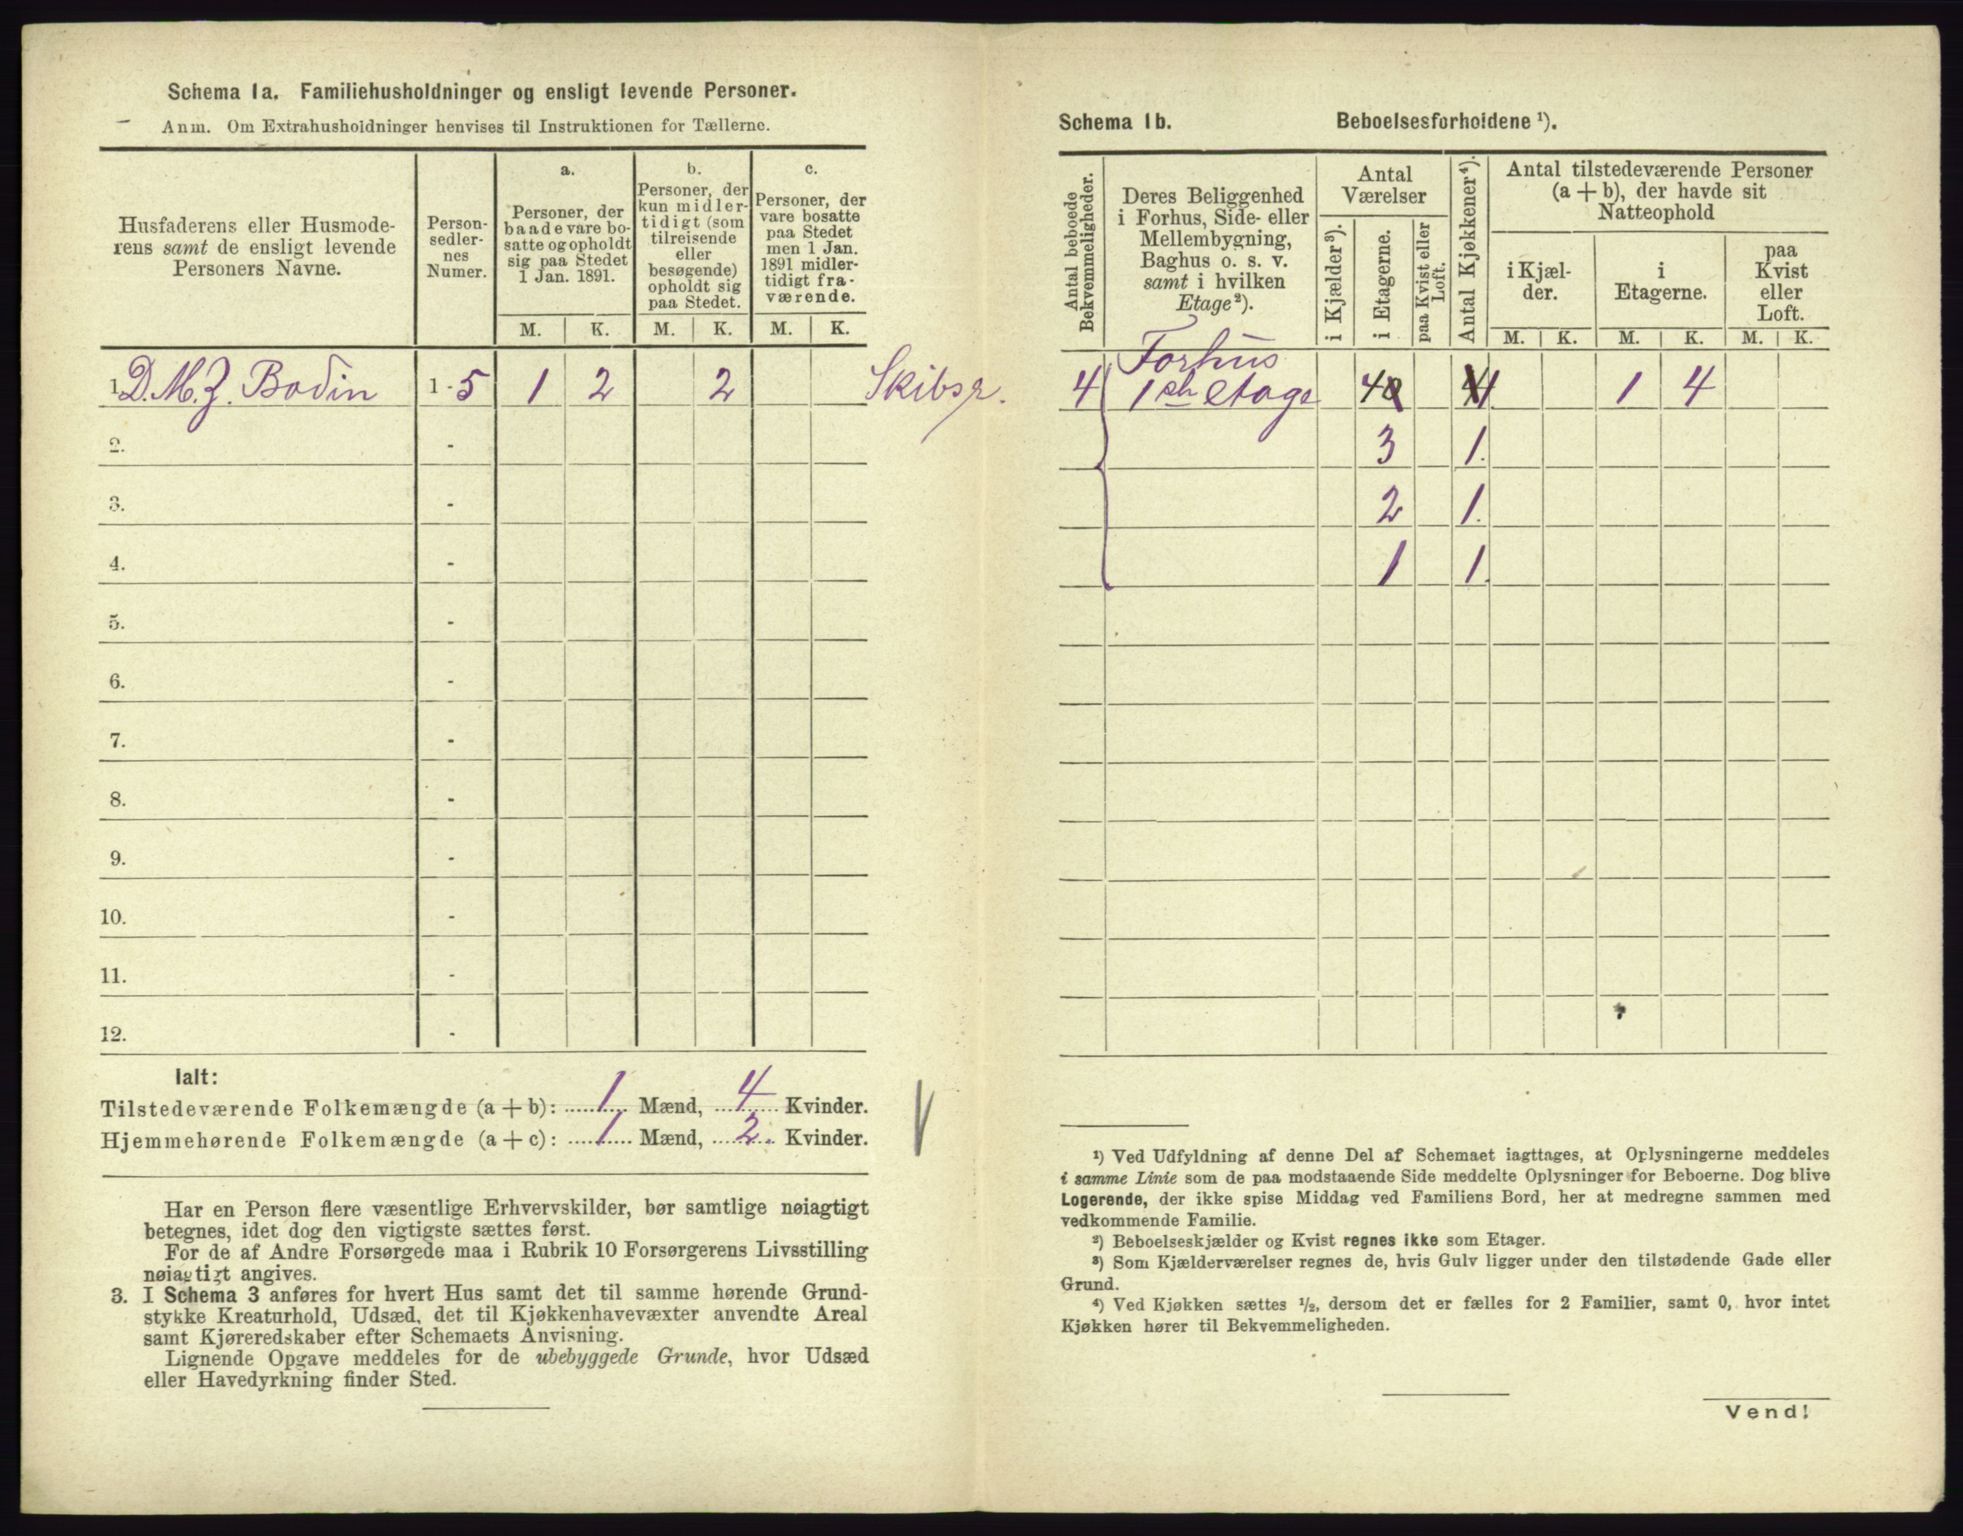 Schema 1a. Familiehusholdninger og ensligt levende Personer.
Anm. Om Extrahusholdninger henvises til Instruktionen for Tællerne.
Husfaderens eller Husmoderens samt de ensligt levende Personers Navne.
Personsedlernes Numer.
a.
Personer, der baade vare bosatte og opholdt sig paa Stedet 1 Jan. 1891.
b.
Personer, der kun midlertidigt (som tilreisende eller besøgende) opholdt sig paa Stedet.
c.
Personer, der vare bosatte paa Stedet men 1 Jan. 1891 midlertidigt fraværende.
M. K. M. K. M. K.
1. D. M. Z. Bodin 1-5 1 2 2 Skibsr.
2. -
3. -
4. -
5. -
6. -
7. -
8. -
9. -
10. -
11. -
12. -
Ialt:
Tilstedeværende Folkemængde (a + b): 1 Mænd, 4 Kvinder.
Hjemmehørende Folkemængde (a + c): 1 Mænd, 2. Kvinder.
Har en Person flere væsentlige Erhvervskilder, bør samtlige nøiagtigt
betegnes, idet dog den vigtigste sættes først.
For de af Andre Forsørgede maa i Rubrik 10 Forsørgerens Livsstilling
nøiagtigt angives.
3. I Schema 3 anføres for hvert Hus samt det til samme hørende Grund-
stykke Kreaturhold, Udsæd, det til Kjøkkenhavevæxter anvendte Areal
samt Kjøreredskaber efter Schemaets Anvisning.
Lignende Opgave meddeles for de ubebyggede Grunde, hvor Udsæd
eller Havedyrkning finder Sted.
Schema 1b. Beboelsesforholdene ¹).
Antal beboede Bekvemmeligheder.
Deres Beliggenhed i Forhus, Side- eller Mellembygning, Baghus o. s. v. samt i hvilken Etage²).
Antal Værelser
i Kjælder³).
i Etagerne.
paa Kvist eller Loft.
Antal Kjøkkener⁴).
Antal tilstedeværende Personer (a + b), der havde sit Natteophold
i Kjælder.
i Etagerne.
paa Kvist eller Loft.
M. K. M. K. M. K.
Forhus
4 1ch etage 4 1 1 4
3 1.
2 1.
1 1.
¹) Ved Udfyldning af denne Del af Schemaet iagttages, at Oplysningerne meddeles
i samme Linie som de paa modstaaende Side meddelte Oplysninger for Beboerne. Dog blive
Logerende, der ikke spise Middag ved Familiens Bord, her at medregne sammen med
vedkommende Familie.
²) Beboelseskjælder og Kvist regnes ikke som Etager.
³) Som Kjælderværelser regnes de, hvis Gulv ligger under den tilstødende Gade eller
Grund.
⁴) Ved Kjøkken sættes ½, dersom det er fælles for 2 Familier, samt 0, hvor intet
Kjøkken hører til Bekvemmeligheden.
Vend!